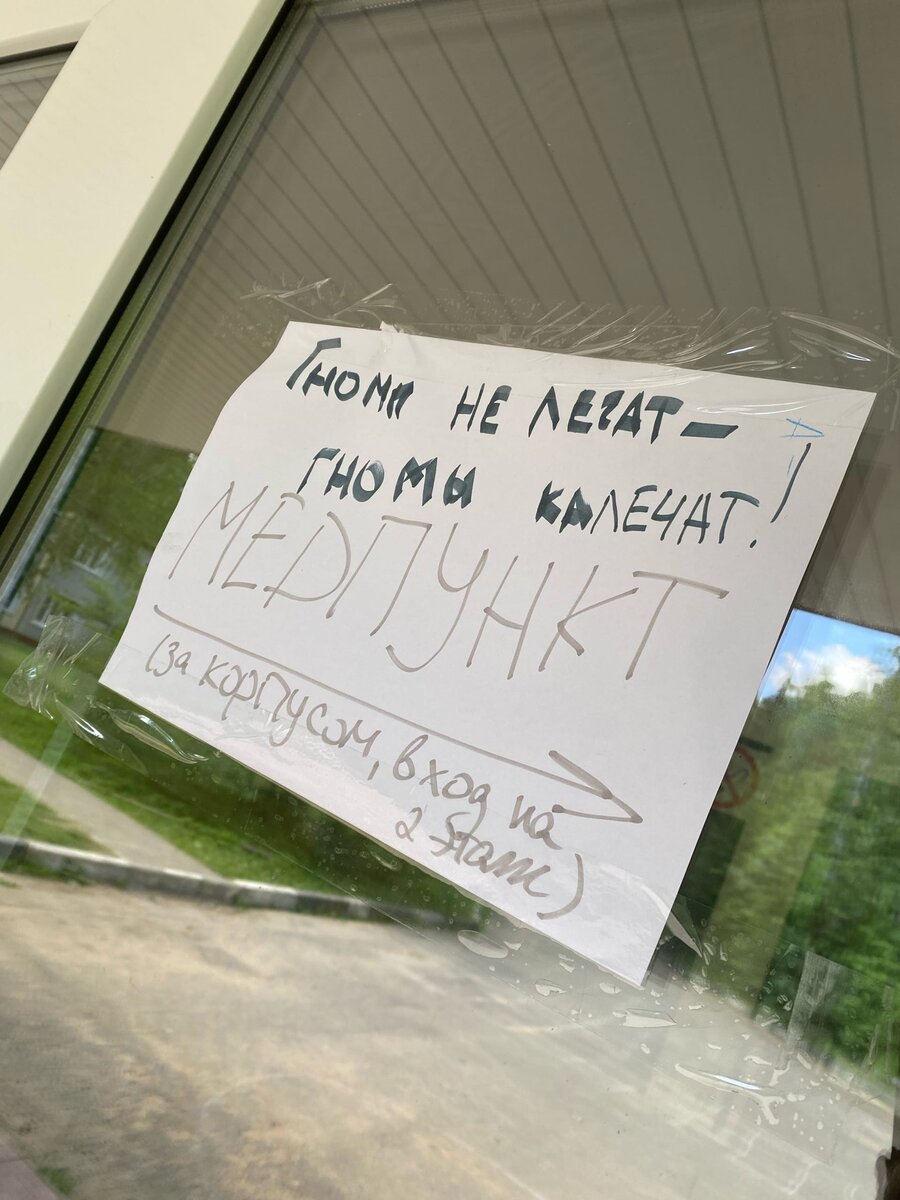 Гноми не легат –
гномы калечат!
МЕДПУНКТ
(за корпусом, вход на
2 этаж)